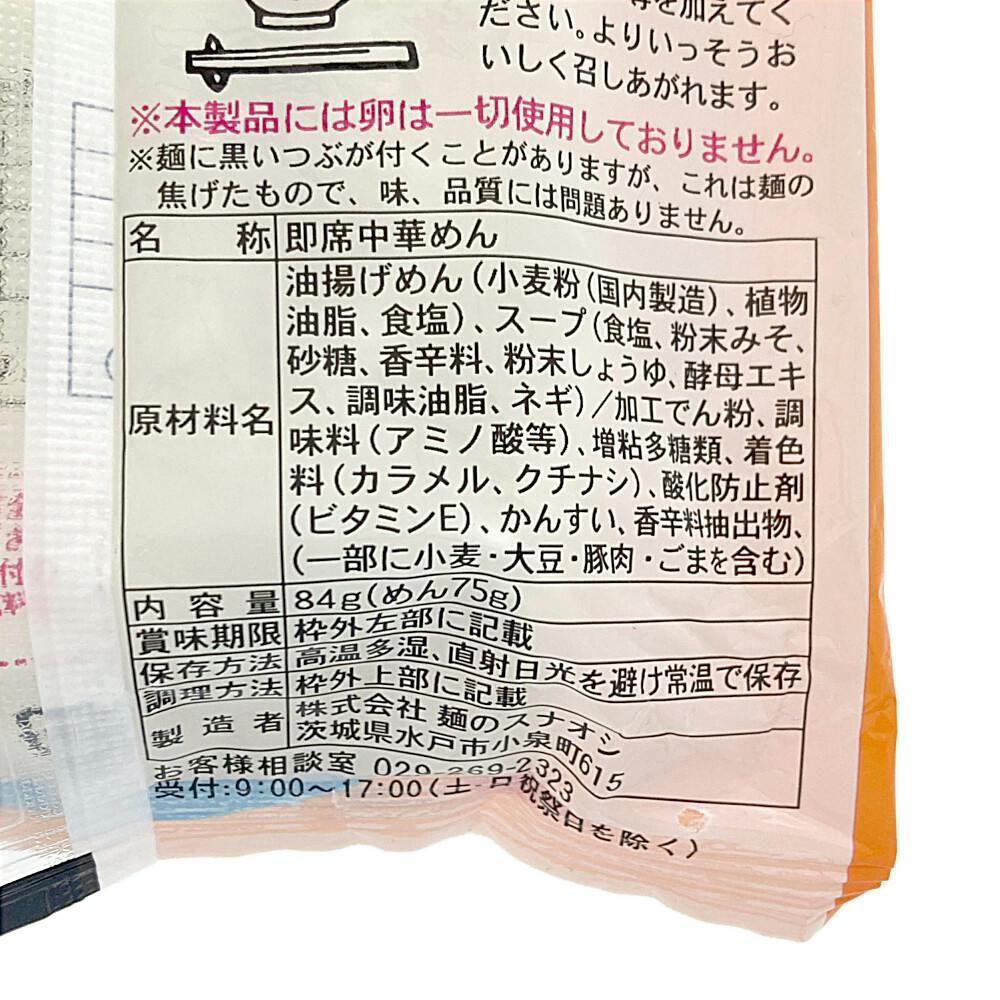 を加えてく
ださい。よりいっそうお
いしく召しあがれます。
※本製品には卵は一切使用しておりません。
※麺に黒いつぶが付くことがありますが、これは麺の
焦げたもので、味、品質には問題ありません。
名称 即席中華めん
原材料名 油揚げめん(小麦粉(国内製造)、植物
油脂、食塩)、スープ(食塩、粉末みそ、
砂糖、香辛料、粉末しょうゆ、酵母エキ
ス、調味油脂、ネギ)/加工でん粉、調
味料(アミノ酸等)、増粘多糖類、着色
料(カラメル、クチナシ)、酸化防止剤
(ビタミンE)、かんすい、香辛料抽出物、
(一部に小麦・大豆・豚肉・ごまを含む)
内容量 84g(めん75g)
賞味期限 枠外左部に記載
保存方法 高温多湿、直射日光を避け常温で保存
調理方法 枠外上部に記載
製造者 株式会社 麺のスナオシ
茨城県水戸市小泉町615
お客様相談室 029-269-2323
受付:9:00~17:00(土・日祝祭日を除く)